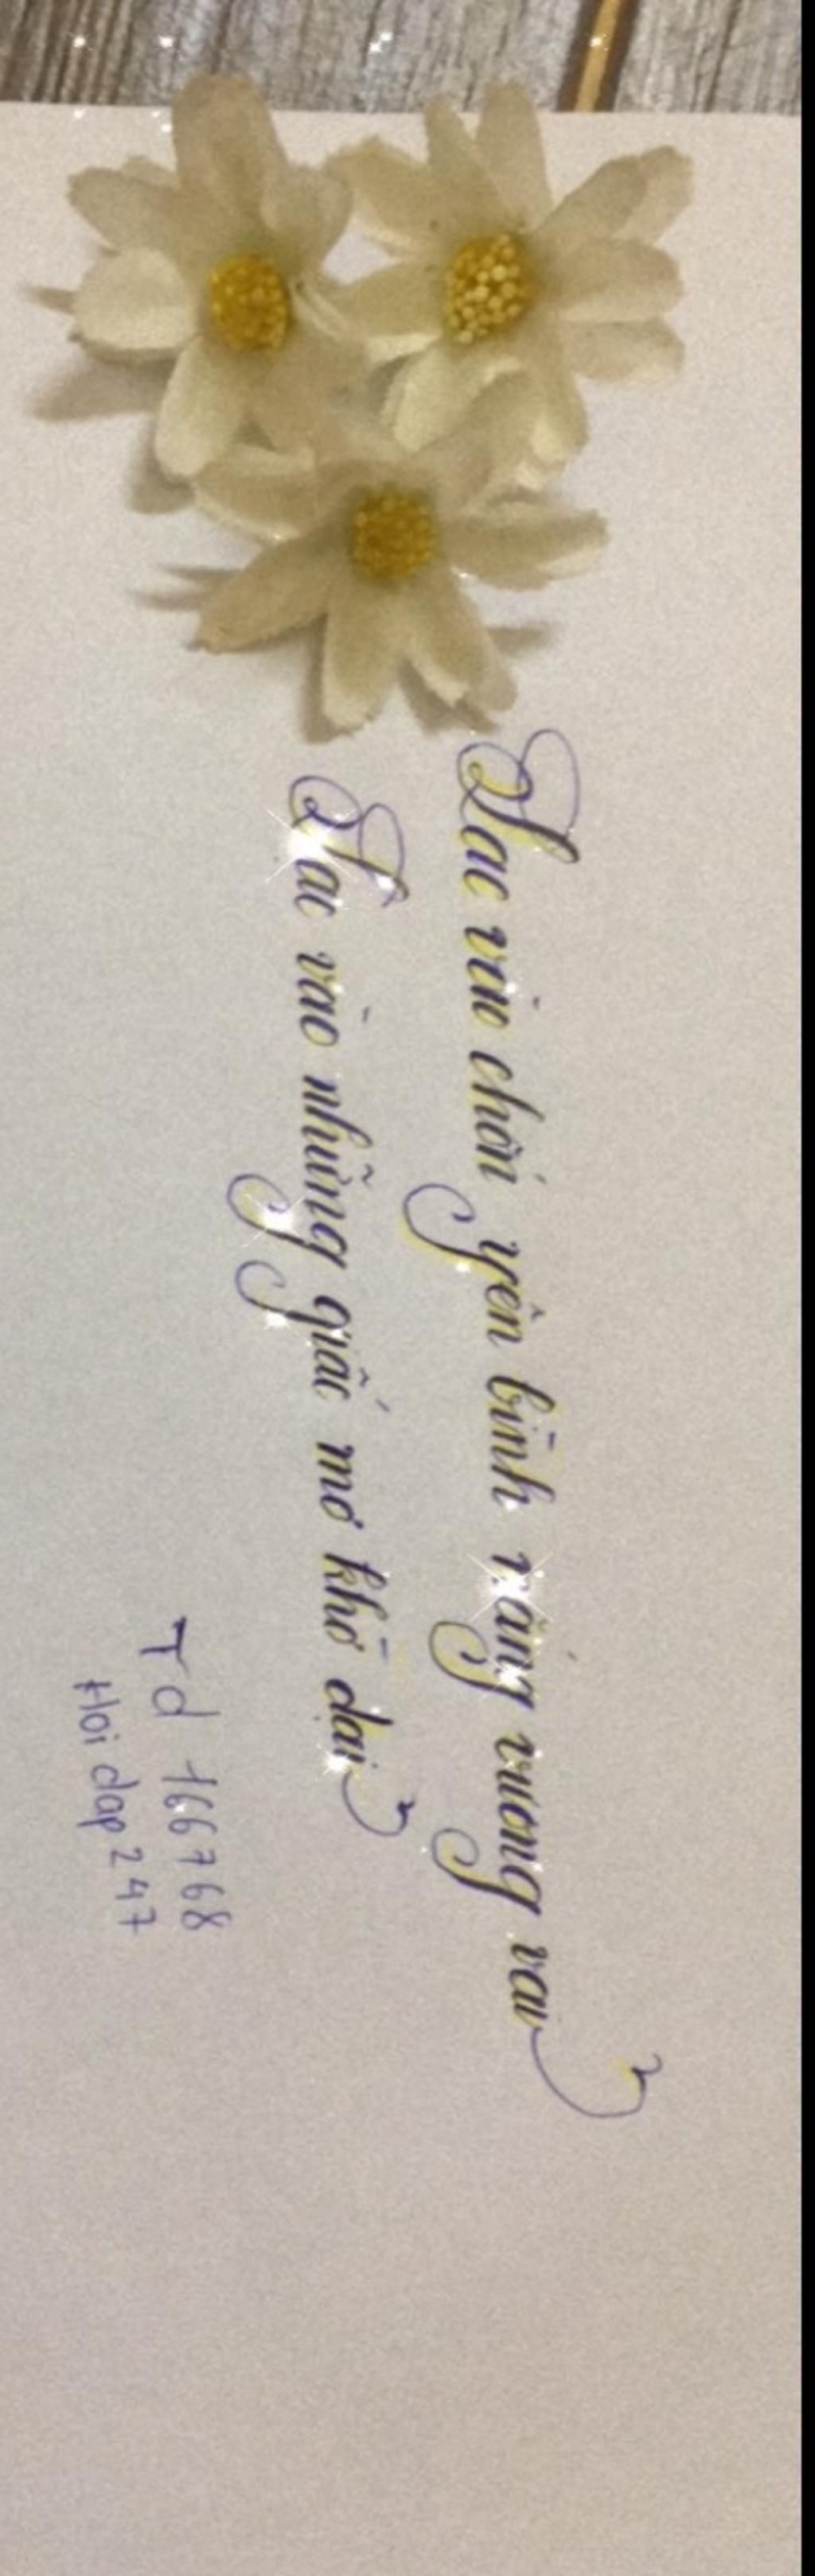 Lạc vào chốn yên bình nắng vương vai
Lạc vào những giấc mơ khờ dại
Td 166768
Hoidap247